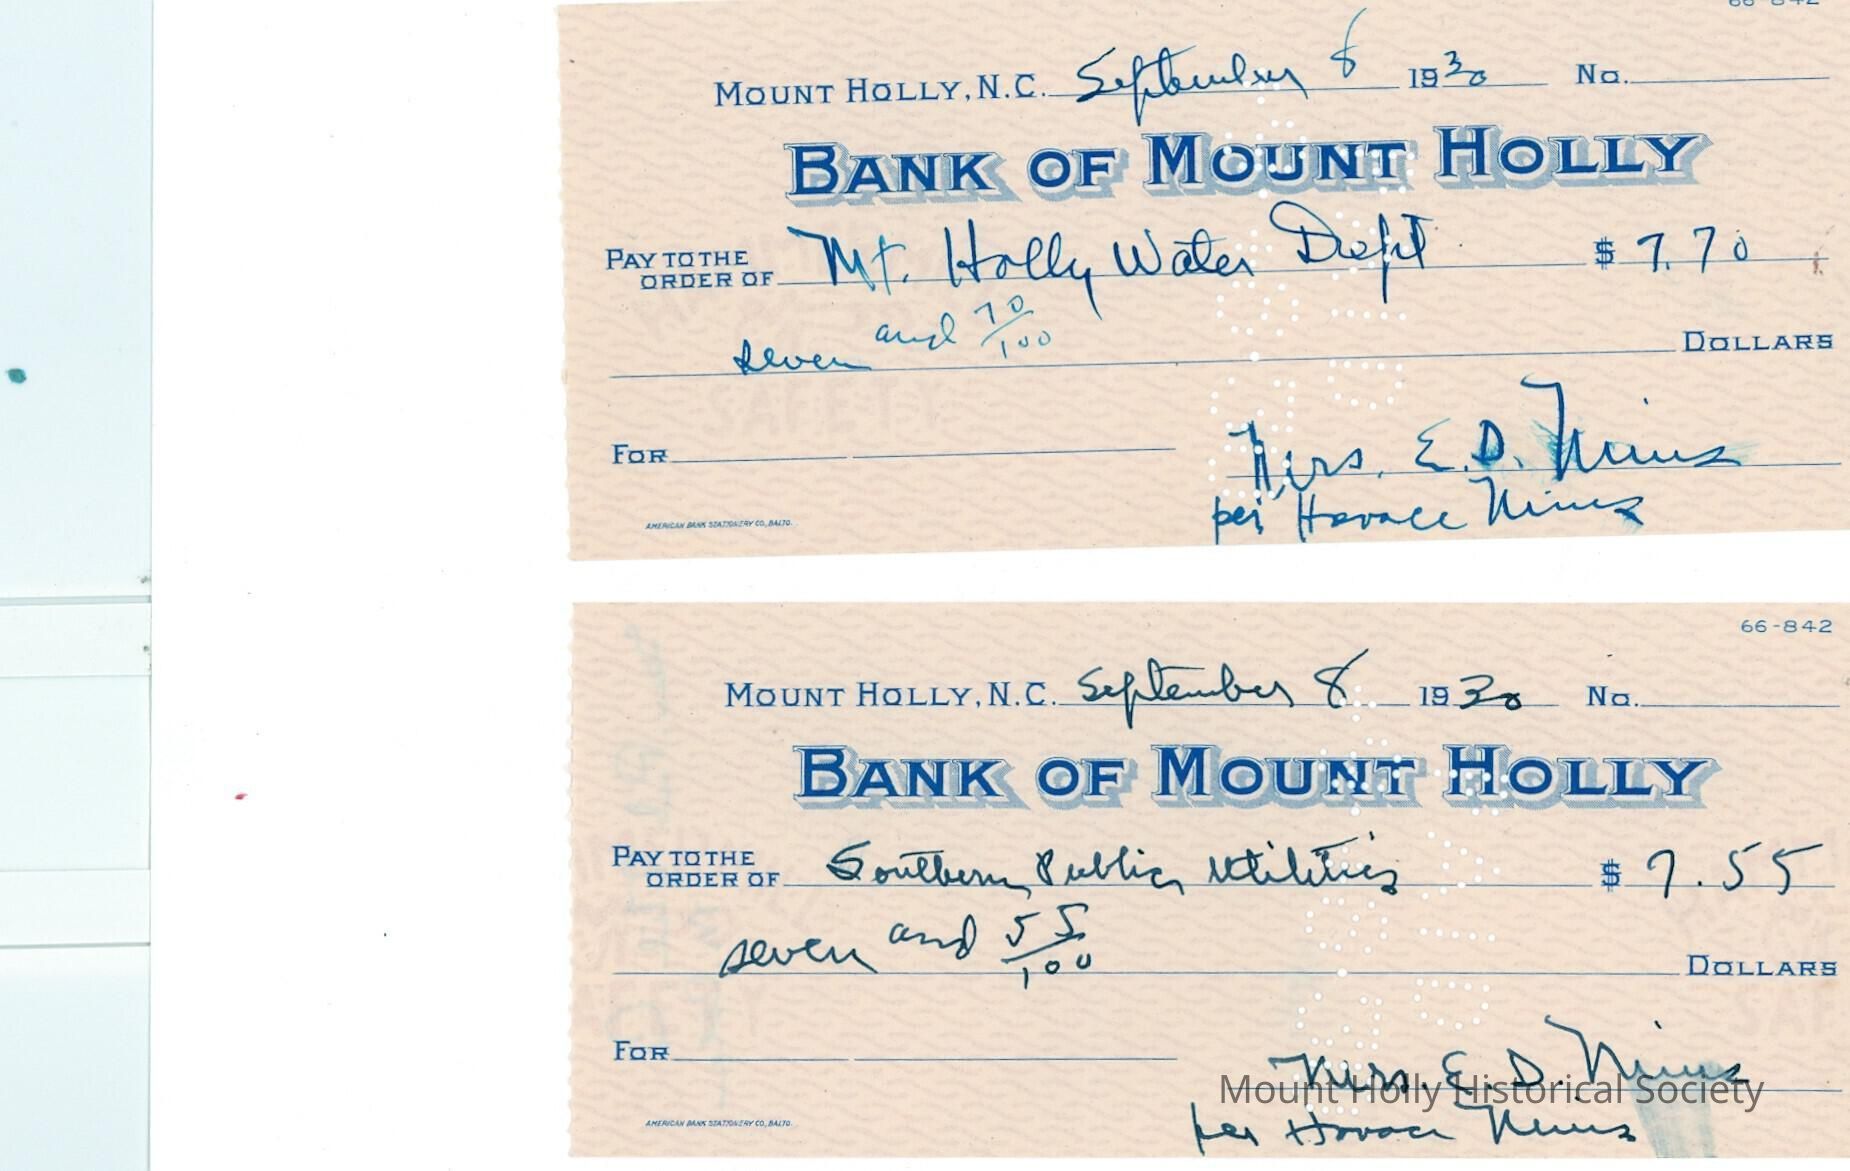 66-842
MOUNT HOLLY, N.C. September 8 1930 No.
BANK OF MOUNT HOLLY
PAY TO THE ORDER OF Mt. Holly Water Dept $ 7.70
seven and 70/100 DOLLARS
SAFETY
FOR Mrs. E. D. Nims
per Horace Nims
AMERICAN BANK STATIONERY CO., BALTO.
66-842
MOUNT HOLLY, N.C. September 8 1930 No.
BANK OF MOUNT HOLLY
PAY TO THE ORDER OF Southern Public Utilities $ 7.55
seven and 55/100 DOLLARS
FOR Mrs. E. D. Nims
per Horace Nims
AMERICAN BANK STATIONERY CO., BALTO.
Mount Holly Historical Society